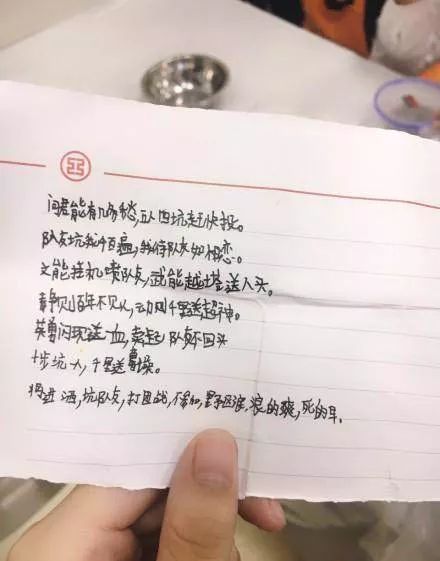 问君能有几多愁,五人四坑赶快投。
队友坑我千百遍,我待队友如初恋。
文能挂机喷队友,武能越塔送人头。
静如南山不见人,动如千里送超神。
英勇闪现送一血,卖起队友不回头
十步坑一人,千里送
将进酒,坑队友,打团战,不参加,野区浪,浪的爽,死的早。